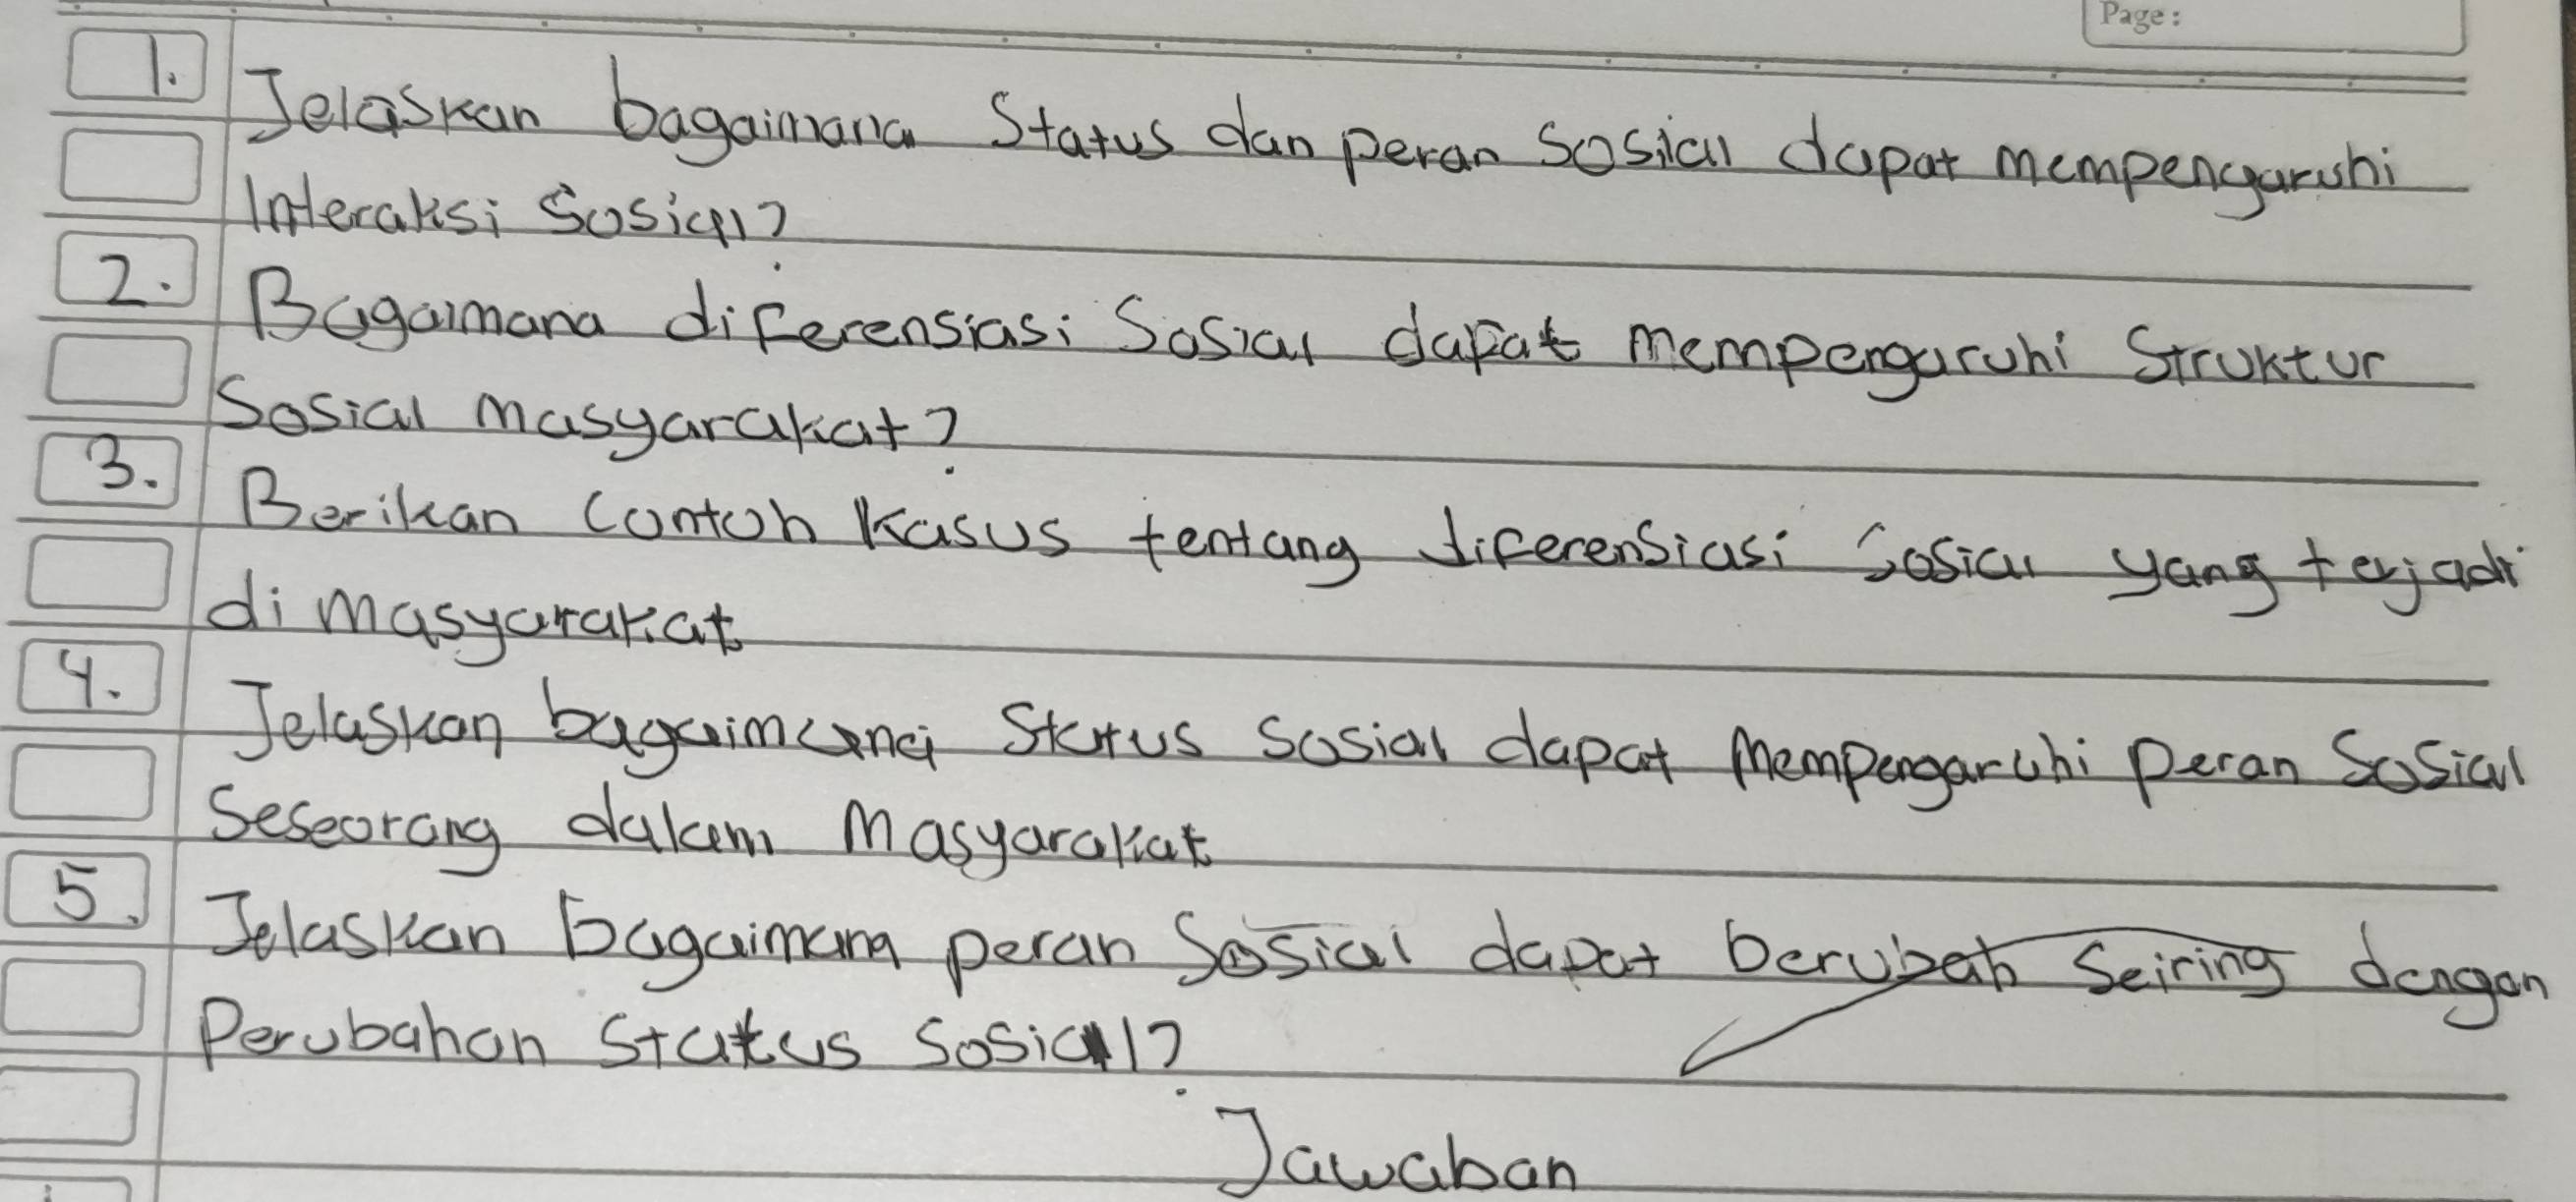 Page:
1. Jelaskan bagaimana Status dan peran Sosial dapat mempengaruhi
Interaksi Sosial?
2. Bagaimana diferensiasi Sosial dapat mempengaruhi Struktur
Sosial masyarakat?
3. Berikan Contoh Kasus tentang diferensiasi Sosial yang terjadi
di masyarakat
4. Jelaskan bagaimana Status Sosial dapat Mempengaruhi peran Sosial
Seseorang dalam Masyarakat
5. Jelaskan bagaimana peran Sosial dapat berubah Seiring dengan
Perubahan Status Sosial?
Jawaban